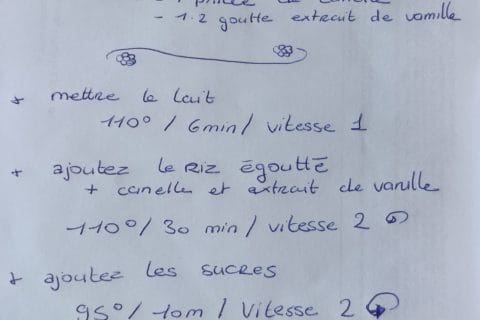 - 1 pincée de canelle
- 1.2 goutte extrait de vanille
+ mettre le lait
110° / 6min / vitesse 1
+ ajoutez le Riz égoutté
+ canelle et extrait de vanille
110° / 30 min / vitesse 2
+ ajoutez les sucres
95° / 10m / Vitesse 2